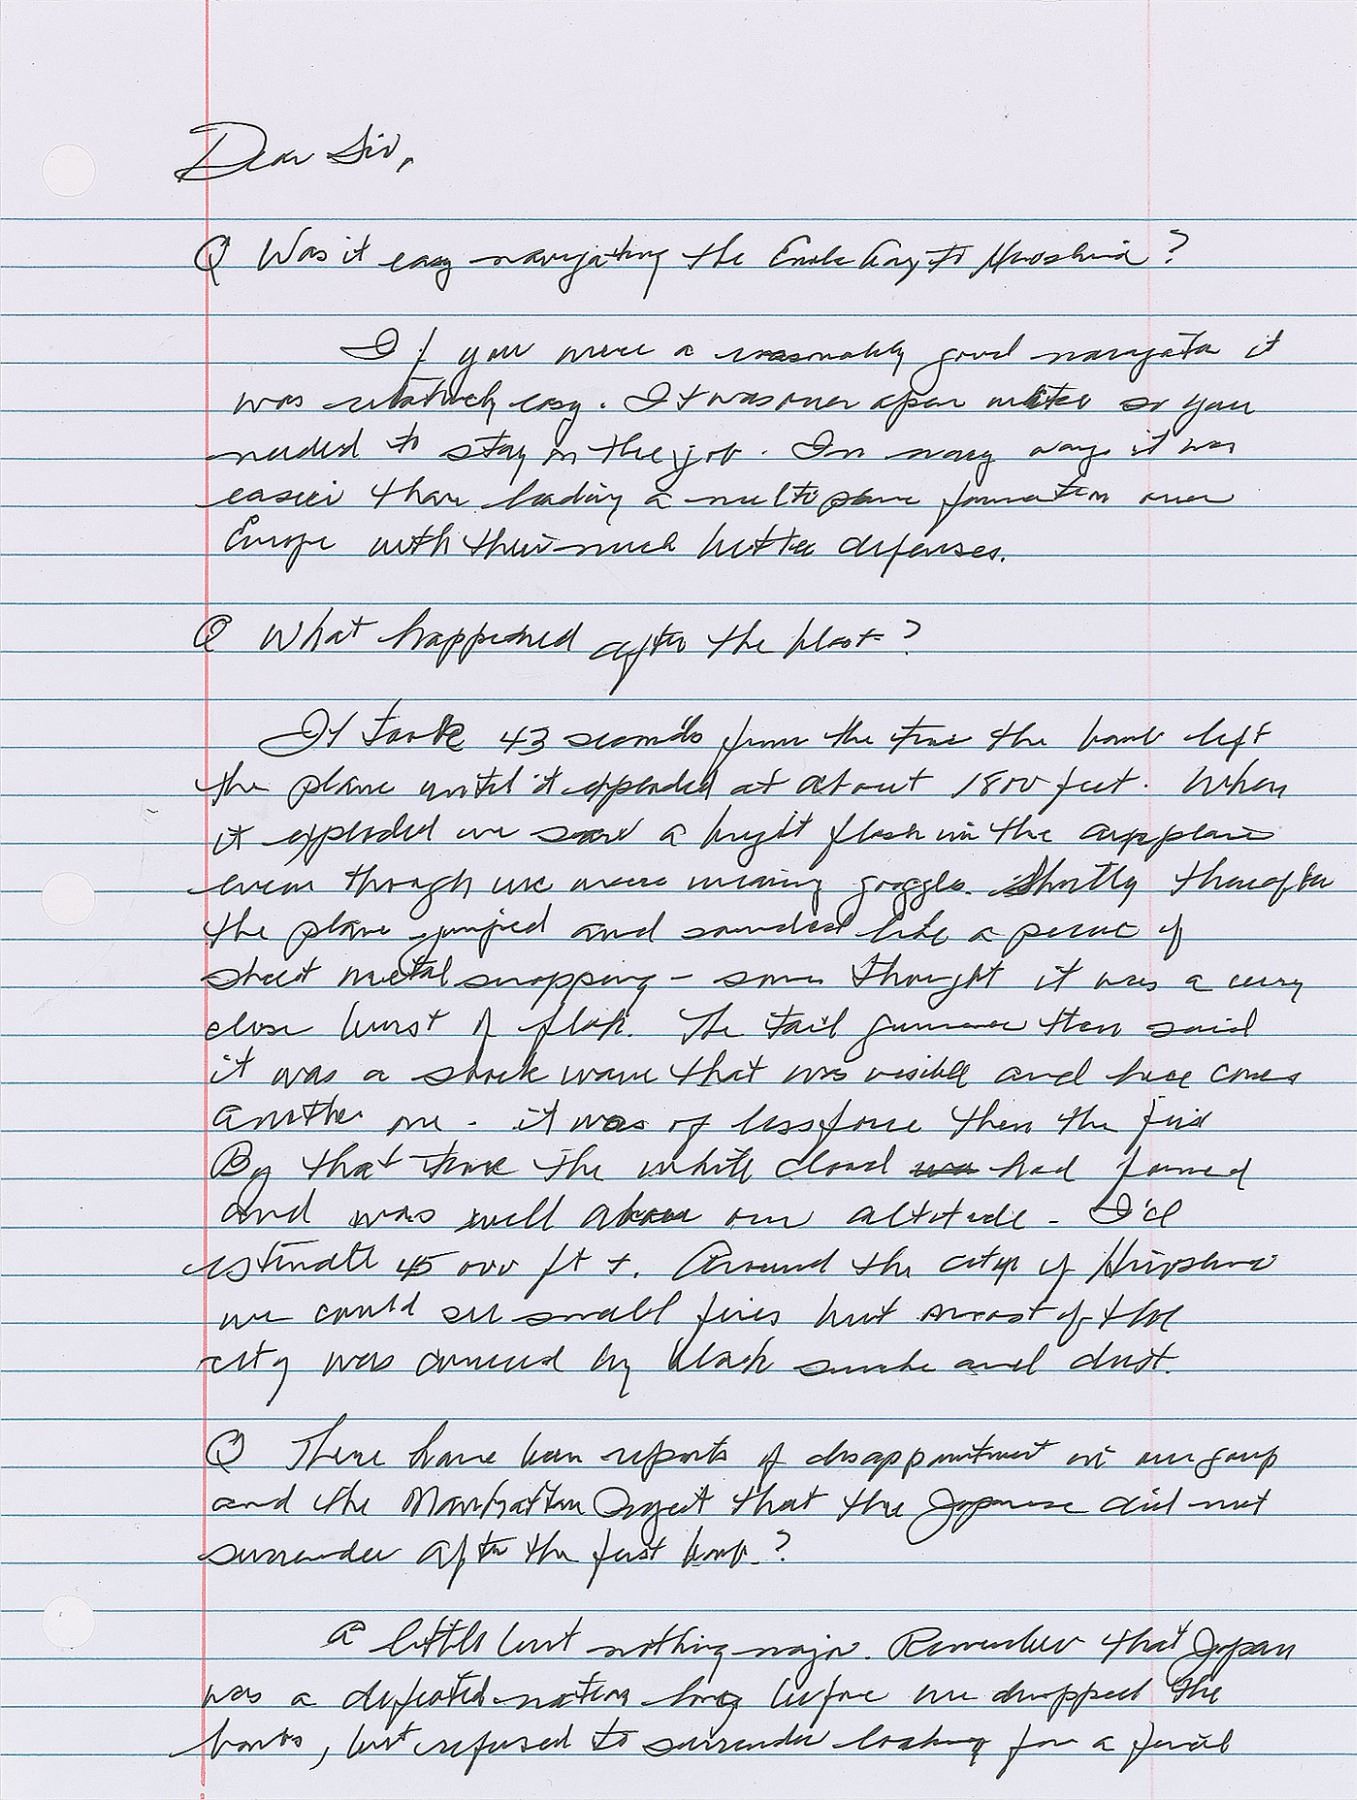 Dear Sir,
Q Was it easy navigating the Enola Gay to Hiroshima?
If you were a reasonably good navigator it
was relatively easy. It was over open water so you
needed to stay on the job. In many ways it was
easier than leading a multi plane formation over
Europe with their much better defenses.
Q What happened after the blast?
It took 43 seconds from the time the bomb left
the plane until it exploded at about 1800 feet. When
it exploded we saw a bright flash in the airplane
even though we were wearing goggles. Shortly thereafter
the plane jumped and sounded like a piece of
sheet metal snapping - some thought it was a very
close burst of flak. The tail gunner then said
it was a shock wave that was visible and here comes
another one - it was of less force then the first
By that time the white cloud had formed
and was well above our altitude - I'd
estimate 45 000 ft +. Around the city of Hiroshima
we could see small fires but most of the
city was covered by black smoke and dust.
Q There have been reports of disappointment in our group
and the Manhattan Project that the Japanese did not
surrender after the first bomb.?
A little but nothing major. Remember that Japan
was a defeated nation long before we dropped the
bombs, but refused to surrender looking for a